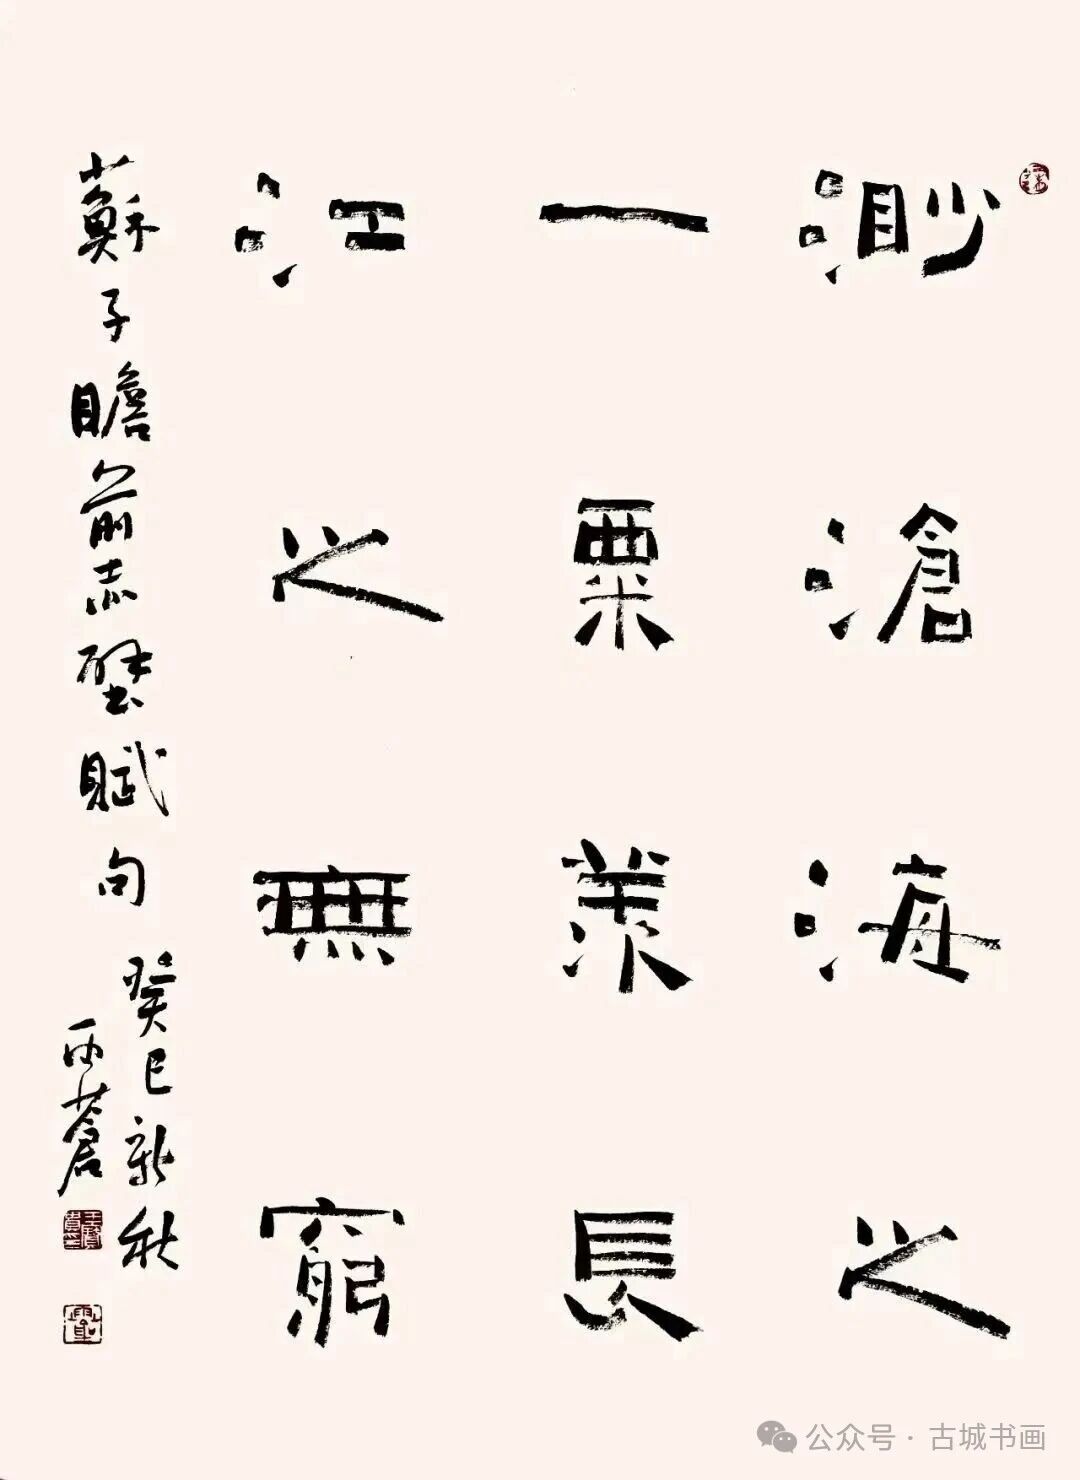 渺滄海之
一粟羨長
江之無窮
蘇子瞻前赤壁賦句
癸巳新秋
公众号·古城书画